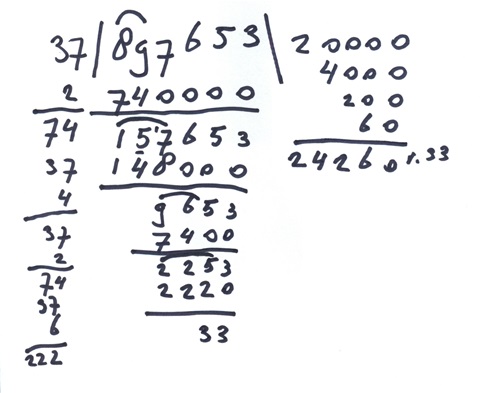 37 | 897653 | 20000
2 740000 4000
74 157653 200
37 148000 60
4 9653 24260 r. 33
37 7400
2 2253
74 2220
37 33
6
222